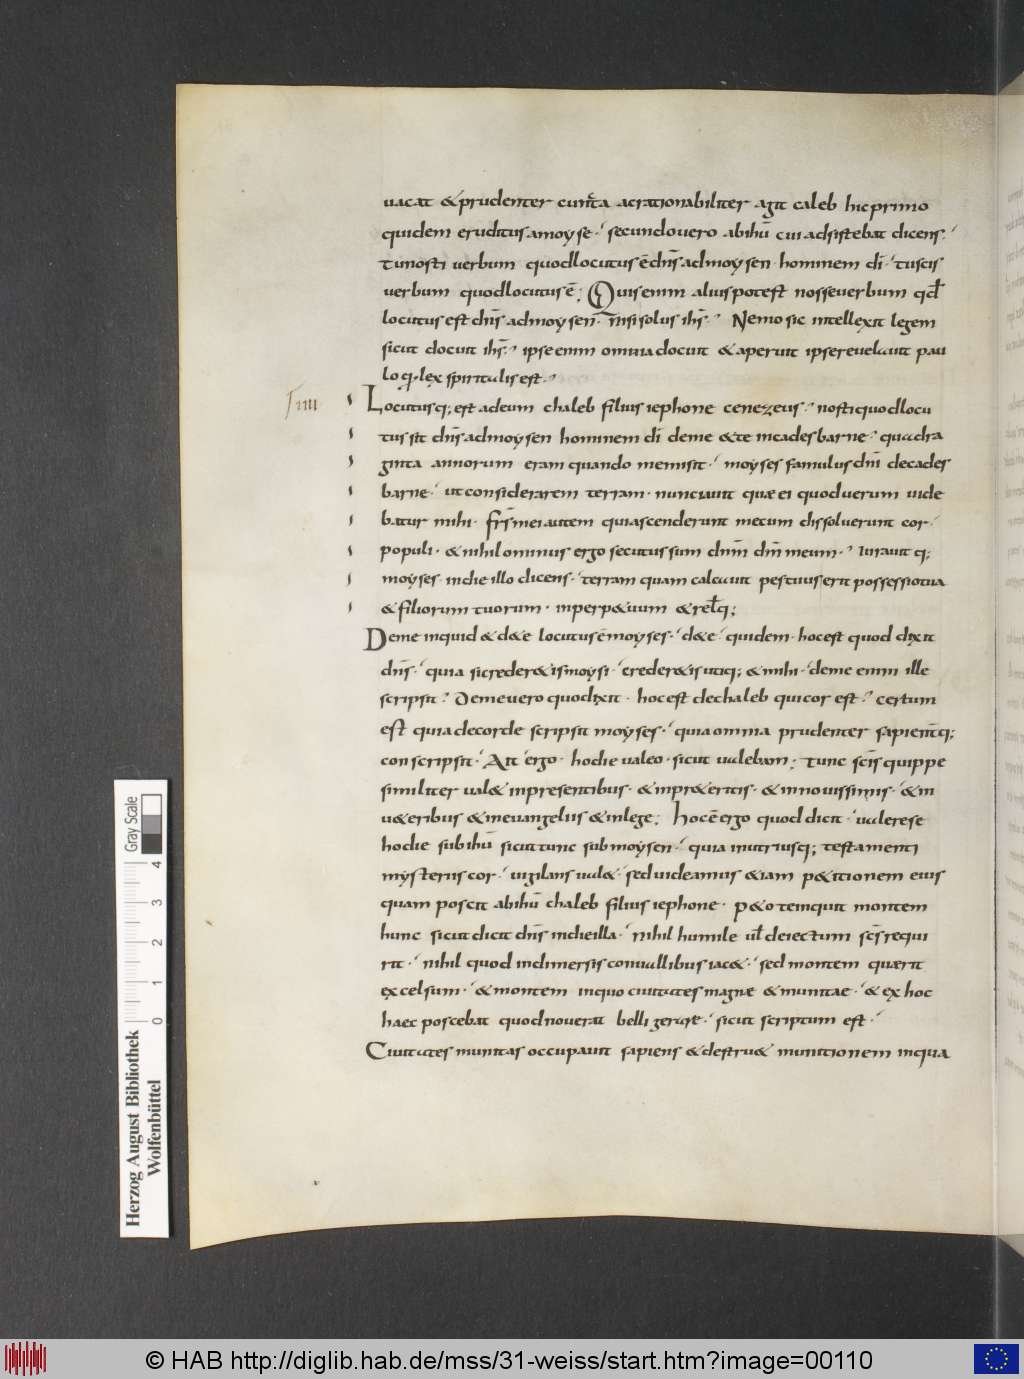 uacat & prudenter cuncta acrationabiliter agit caleb hic primo
quidem eruditus amoyse · secundo uero abihū cui adsistebat dicens ·
tu nosti uerbum quod locutus ē dn̄s ad moysen hominem dī · tu scis
uerbum quod locutus ē ; Quis enim alius potest nosse uerbum qđ
locutus est dn̄s ad moysen · nisi solus ih̄s · Nemo sic intellexit legem
sicut docuit ih̄s · ipse enim omnia docuit & aperuit ipse reuelauit pau
lo q · lex spiritalis est ·
iiii
Locutus q; est ad eum chaleb filius iephone cenezeus · nosti quod locu
tus sit dn̄s ad moysen hominem dī de me & te in cades barne · quadra
ginta annorum eram quando me misit · moyses famulus dn̄i de cades
barne · ut considerarem terram · nunciauit quæ ei quod uerum uide
batur mihi · fr̄s mei autem qui ascenderunt mecum dissoluerunt cor ·
populi · & nihilominus ergo secutus sum dn̄m dm̄ meum · iurauit q;
moyses · in die illo dicens · terram quam calcauit pes tuus erit possessio tua
& filiorum tuorum · in perp&uum & rel̄q;
De me inquid & de te locutus ē moyses · d& e quidem · hoc est quod dixit
dn̄s · quia si creder&is moysi · creder&is utiq; & mihi · de me enim ille
scripsit · De me uero quod dixit · hoc est de chaleb qui cor est · certum
est quia de corde scripsit moyses · quia omnia prudenter sapienterq;
conscripsit · Ait ergo · hodie ualeo · sicut ualebam ; tunc sc̄s quippe
similiter ual& in presentibus · & in pr&eritis · & in nouissimis · & in
u&eribus & in euangeliis & in lege ; hoc ē ergo quod dicit · ualere se
hodie sub ihū sicut tunc sub moysen · quia in utriusq; testamenti
mysteriis cor · uigilans ual& · sed uideamus &iam p&itionem eius
quam poscit ab ihū chaleb filius iephone · p&o te inquit montem
hunc sicut dicit dn̄s in die illa · nihil humile ul̄ deiectum sc̄s requi
rit · nihil quod in dimersis conuallibus iac& · sed montem quærit
excelsum · & montem in quo ciuitates magnæ & munitae · & ex hoc
haec poscebat quod nouerat belli gerere · sicut scriptum est ·
Ciuitates munitas occupauit sapiens & destru& munitionem in qua
Herzog August Bibliothek
Wolfenbüttel
0 1 2 3 4
Gray Scale
© HAB http://diglib.hab.de/mss/31-weiss/start.htm?image=00110